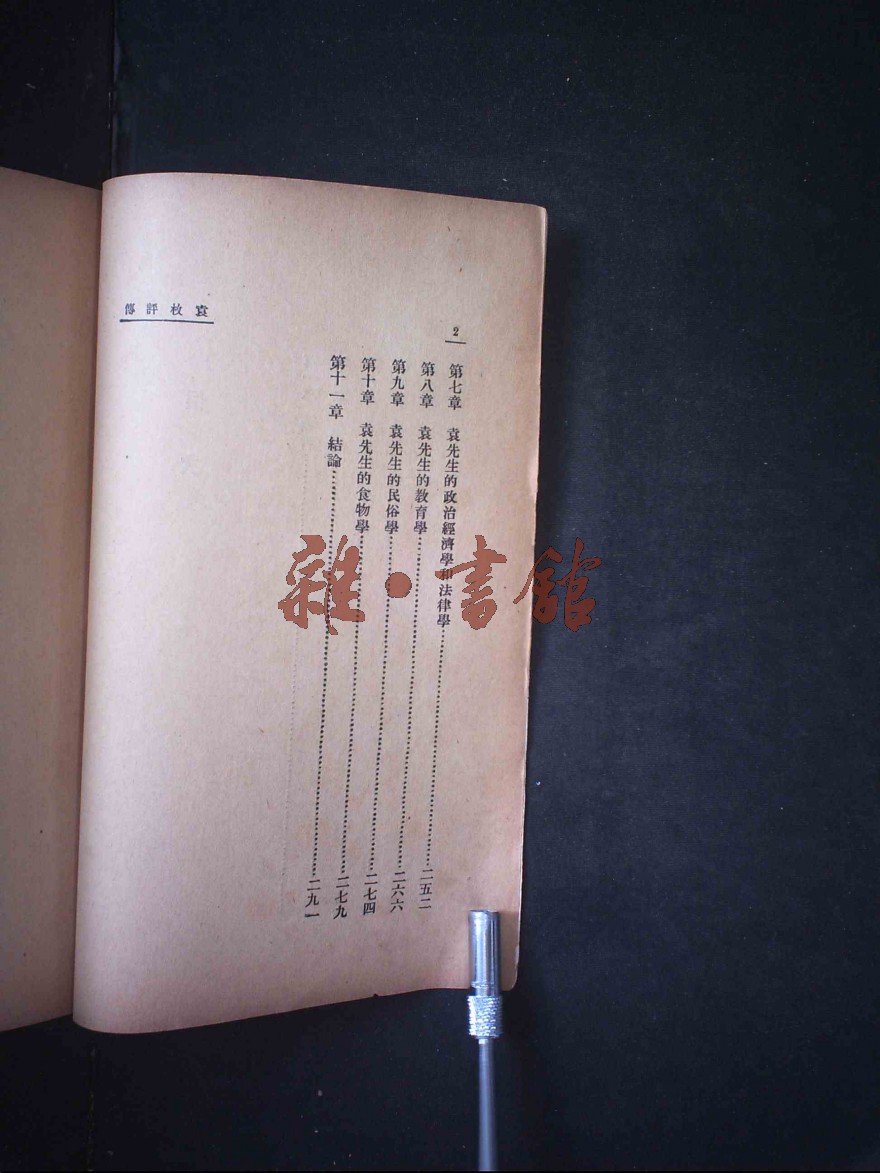 袁枚評傳
2
第七章 袁先生的政治經濟學和法律學……二五二
第八章 袁先生的教育學……二六六
第九章 袁先生的民俗學……二七四
第十章 袁先生的食物學……二七九
第十一章 結論……二九一
雜·書館